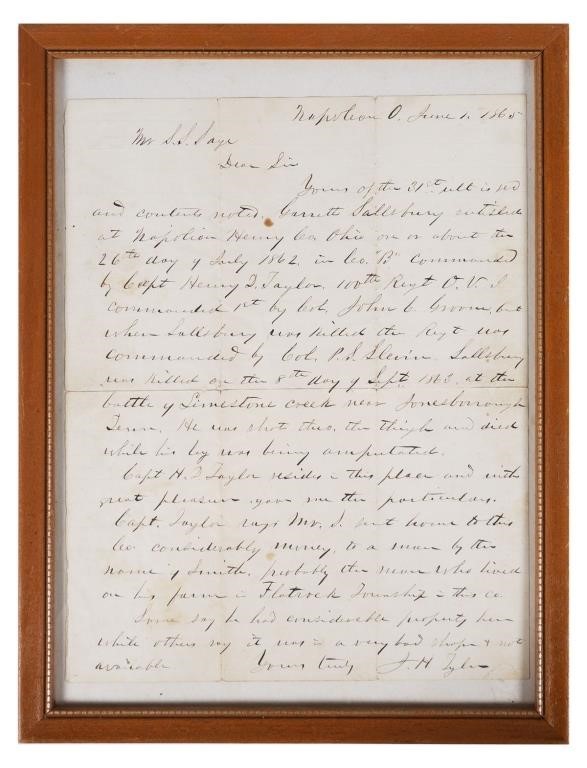 Napoleon O. June 1. 1865
Mr S.S. Sage
Dear Sir
Yours of the 31st ult is recd
and contents noted. Garrett Sallsbury enlisted
at Napoleon Henry Co. Ohio on or about the
26th day of July 1862. in Co. "B" commanded
by Capt Henry D. Taylor, 100th Regt O. V. I
commanded 1st by Col. John C. Groom, but
when Sallsbury was killed the Regt was
commanded by Col. P. S. Slevin. Sallsbury
was killed on the 8th day of Sept. 1863. at the
battle of Limestone creek near Jonesborrough
Tenn. He was shot thro. the thigh and died
while his leg was being amputated.
Capt H. D Taylor resides in this place and with
great pleasure gave me the particulars.
Capt. Taylor says Mr. S. sent home to this
Co. considerably money, to a man by the
name of Smith, probably the man who lived
on his farm in Flatrock Township in this co.
Some say he had considerable property here
while others say it was in a very bad shape & not
available Yours truly J. H. Tyler